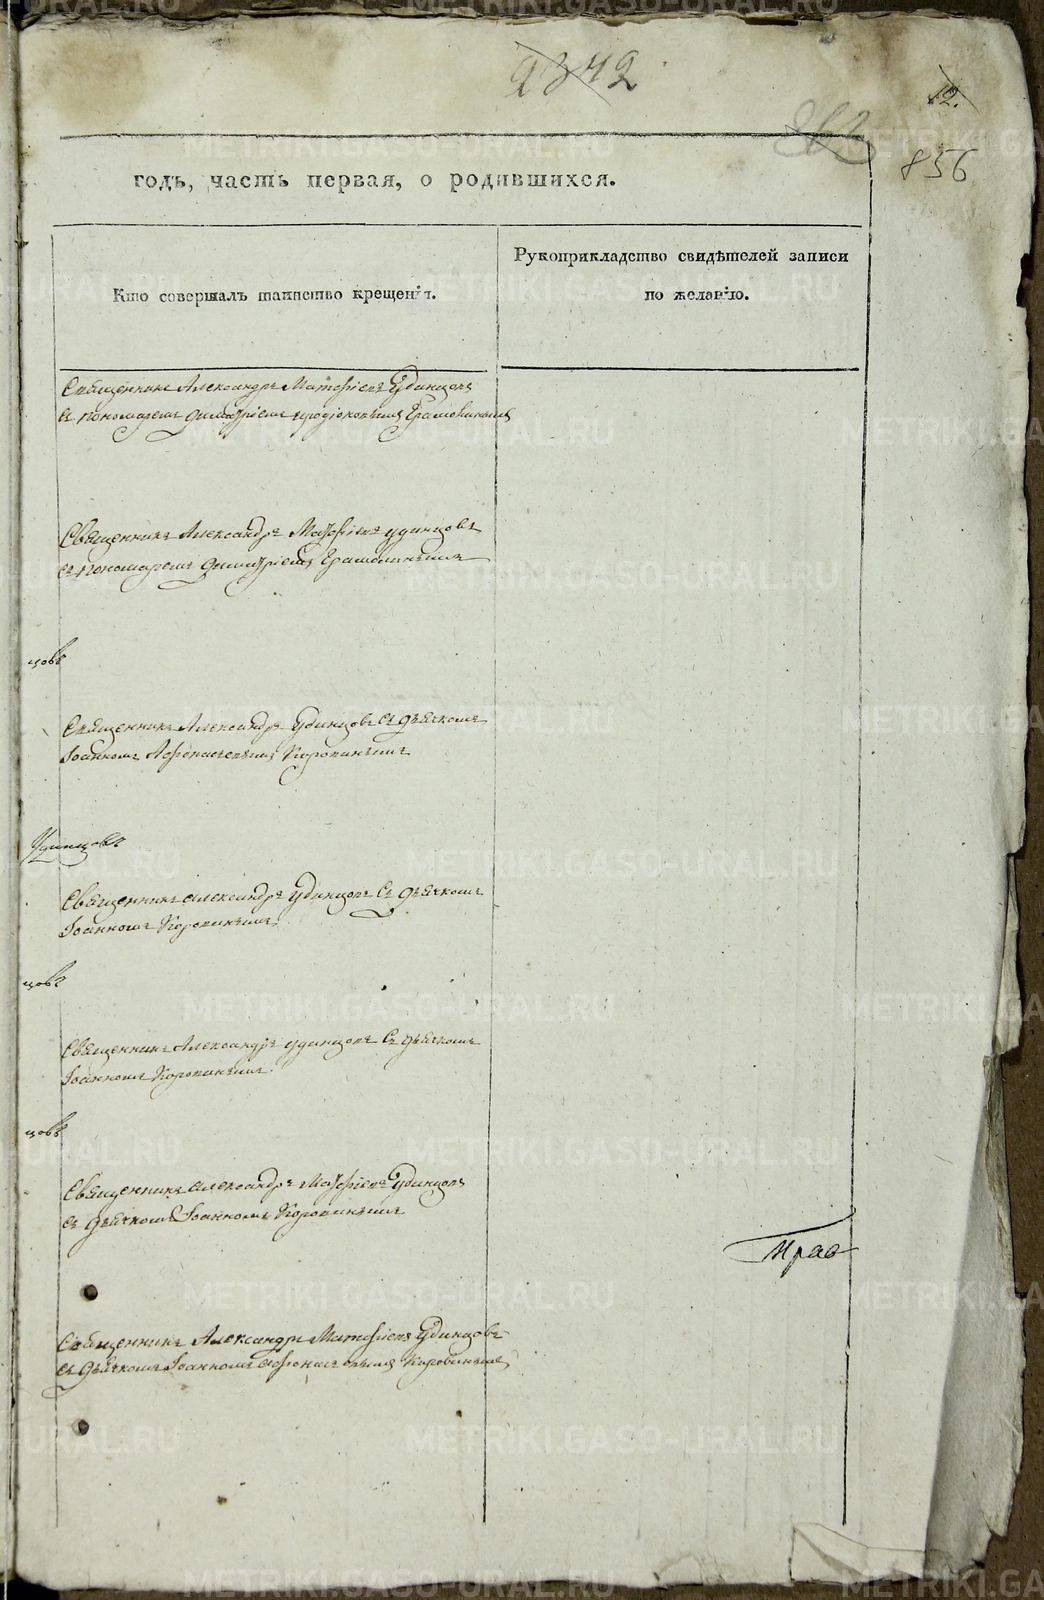 2342
12.
362
856
годъ, часть первая, о родившихся.
Кто совершалъ таинство крещенія.
Рукоприкладство свидѣтелей записи
по желанію.
Священникъ Александръ Матфіевъ Удинцовъ
съ пономаремъ Димитріемъ
Священникъ Александръ Матфіевъ Удинцовъ
съ пономаремъ Димитріемъ
цовъ
Священникъ Александръ Удинцовъ съ дьячкомъ
Іоанномъ Афонасьевымъ Коровинымъ
Удинцовъ
Священникъ Александръ Удинцовъ съ дьячкомъ
Іоанномъ Коровинымъ.
цовъ
Священникъ Александръ Удинцовъ съ дьячкомъ
Іоанномъ Коровинымъ.
цовъ
Священникъ Александръ Матфіевъ Удинцовъ
съ дьячкомъ Іоанномъ Коровинымъ
Священникъ Александръ Матфіевъ Удинцовъ
съ дьячкомъ Іоанномъ Афонасьевымъ Коровинымъ
METRIKI.GASO-URAL.RU